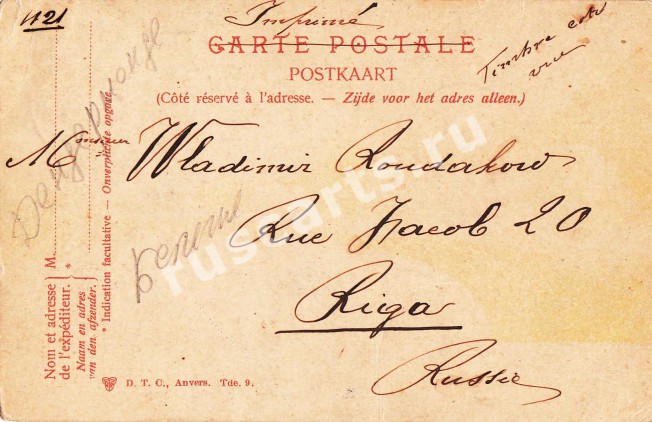 1121
Imprimé
CARTE POSTALE
POSTKAART
(Côté réservé à l'adresse. — Zijde voor het adres alleen.)
Timbre côté
vue
Monsieur Wladimir Roudakow
Rue Jacob 20
Riga
Russie
Дендермонде
Бельгіе
russcarts.ru
Nom et adresse
de l'expéditeur.
Naam en adres
van den afzender.
M.
*
* Indication facultative — Onverplichte opgave.
D. T. C., Anvers. Tde. 9.